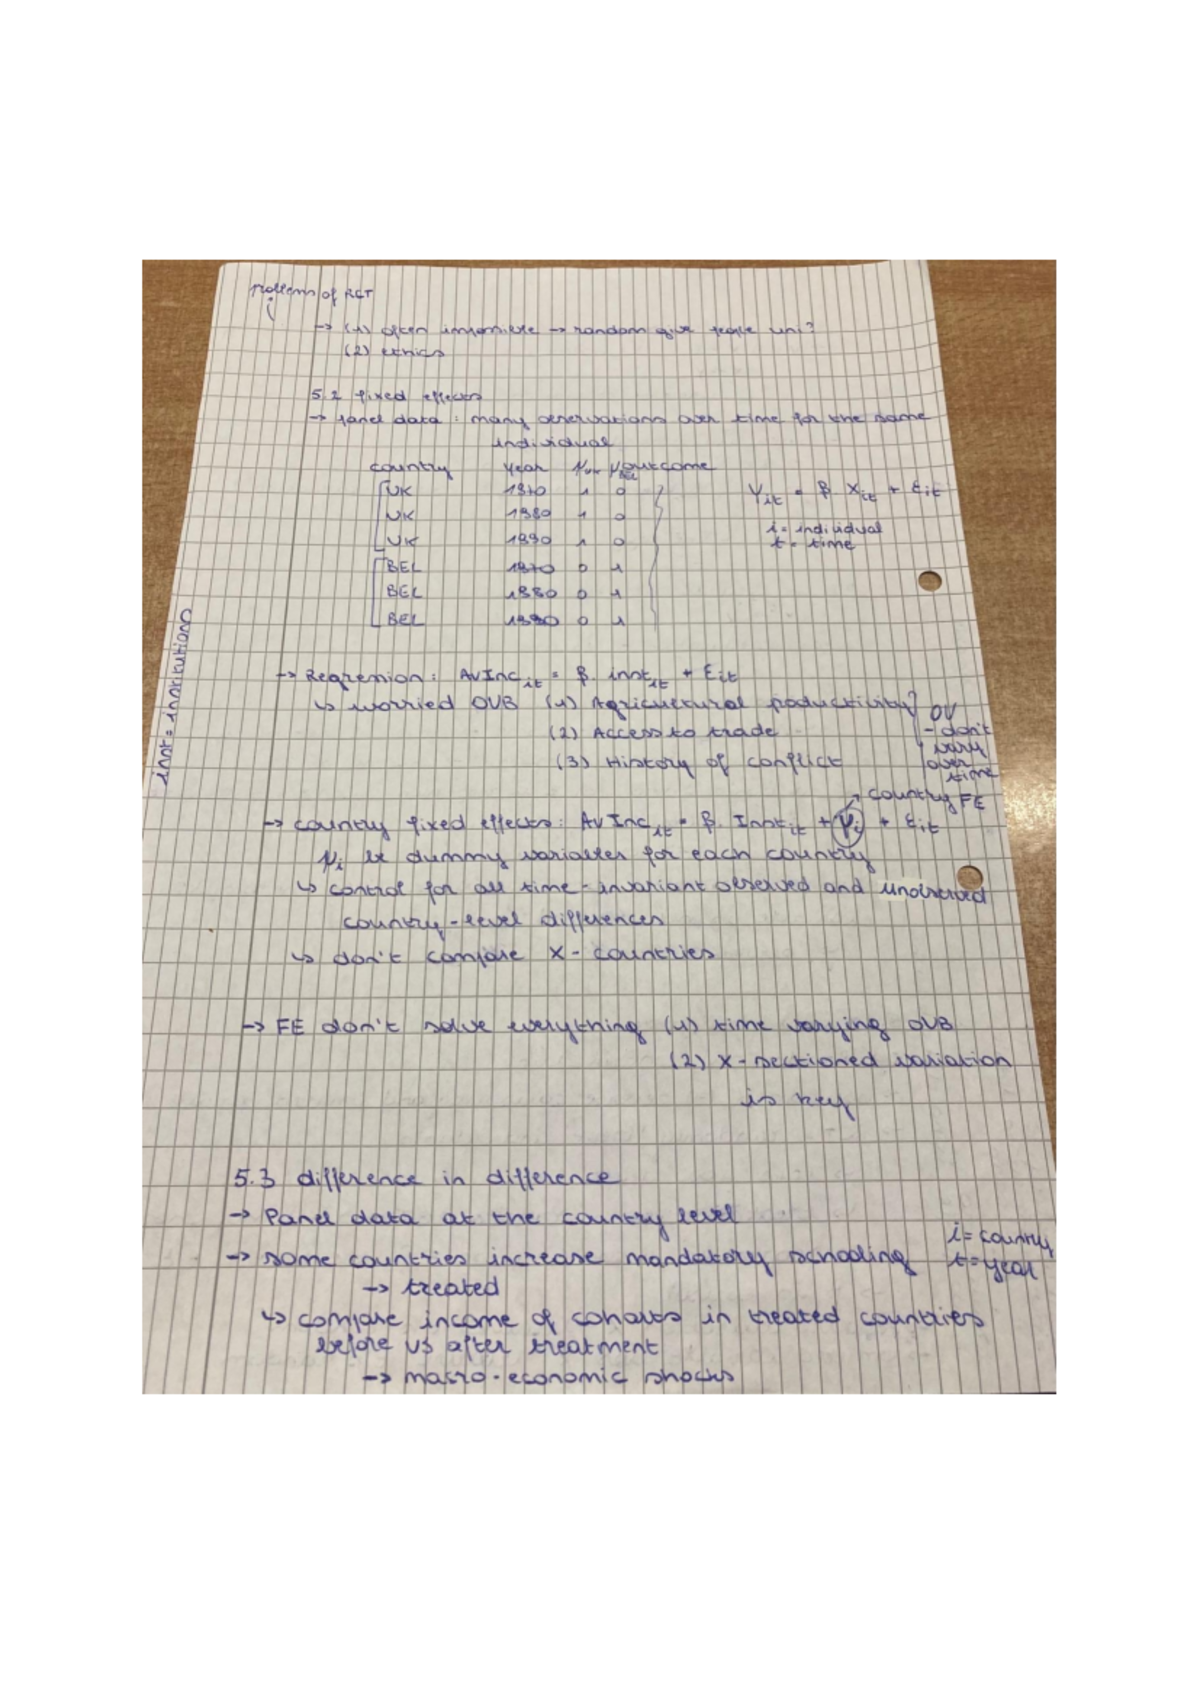 Problems of RCT
→ (1) often impossible → random give people uni?
(2) ethics
5.2 fixed effects
→ Panel data : many observations over time for the same
individual
country Year μUK μBEL outcome
UK 1870 1 0
UK 1880 1 0
UK 1890 1 0
BEL 1870 0 1
BEL 1880 0 1
BEL 1890 0 1
Yit = β Xit + εit
i = individual
t = time
inst = institutions
→ Regression: AvIncit = β. instit + εit
↳ worried OVB (1) Agricultural productivity
(2) Access to trade
(3) History of conflict
OV
- don't
vary
over
time
→ country FE
→ country fixed effects: AvIncit = β. Instit + μi + εit
μi be dummy variables for each country
↳ control for all time-invariant observed and unobserved
country-level differences
↳ don't compare X-countries
→ FE don't solve everything (1) time varying OVB
(2) X-sectioned variation
is key
5.3 difference in difference
→ Panel data at the country level
→ some countries increase mandatory schooling
→ treated
i = country
t = year
↳ compare income of cohorts in treated countries
before vs after treatment
→ macro-economic shocks